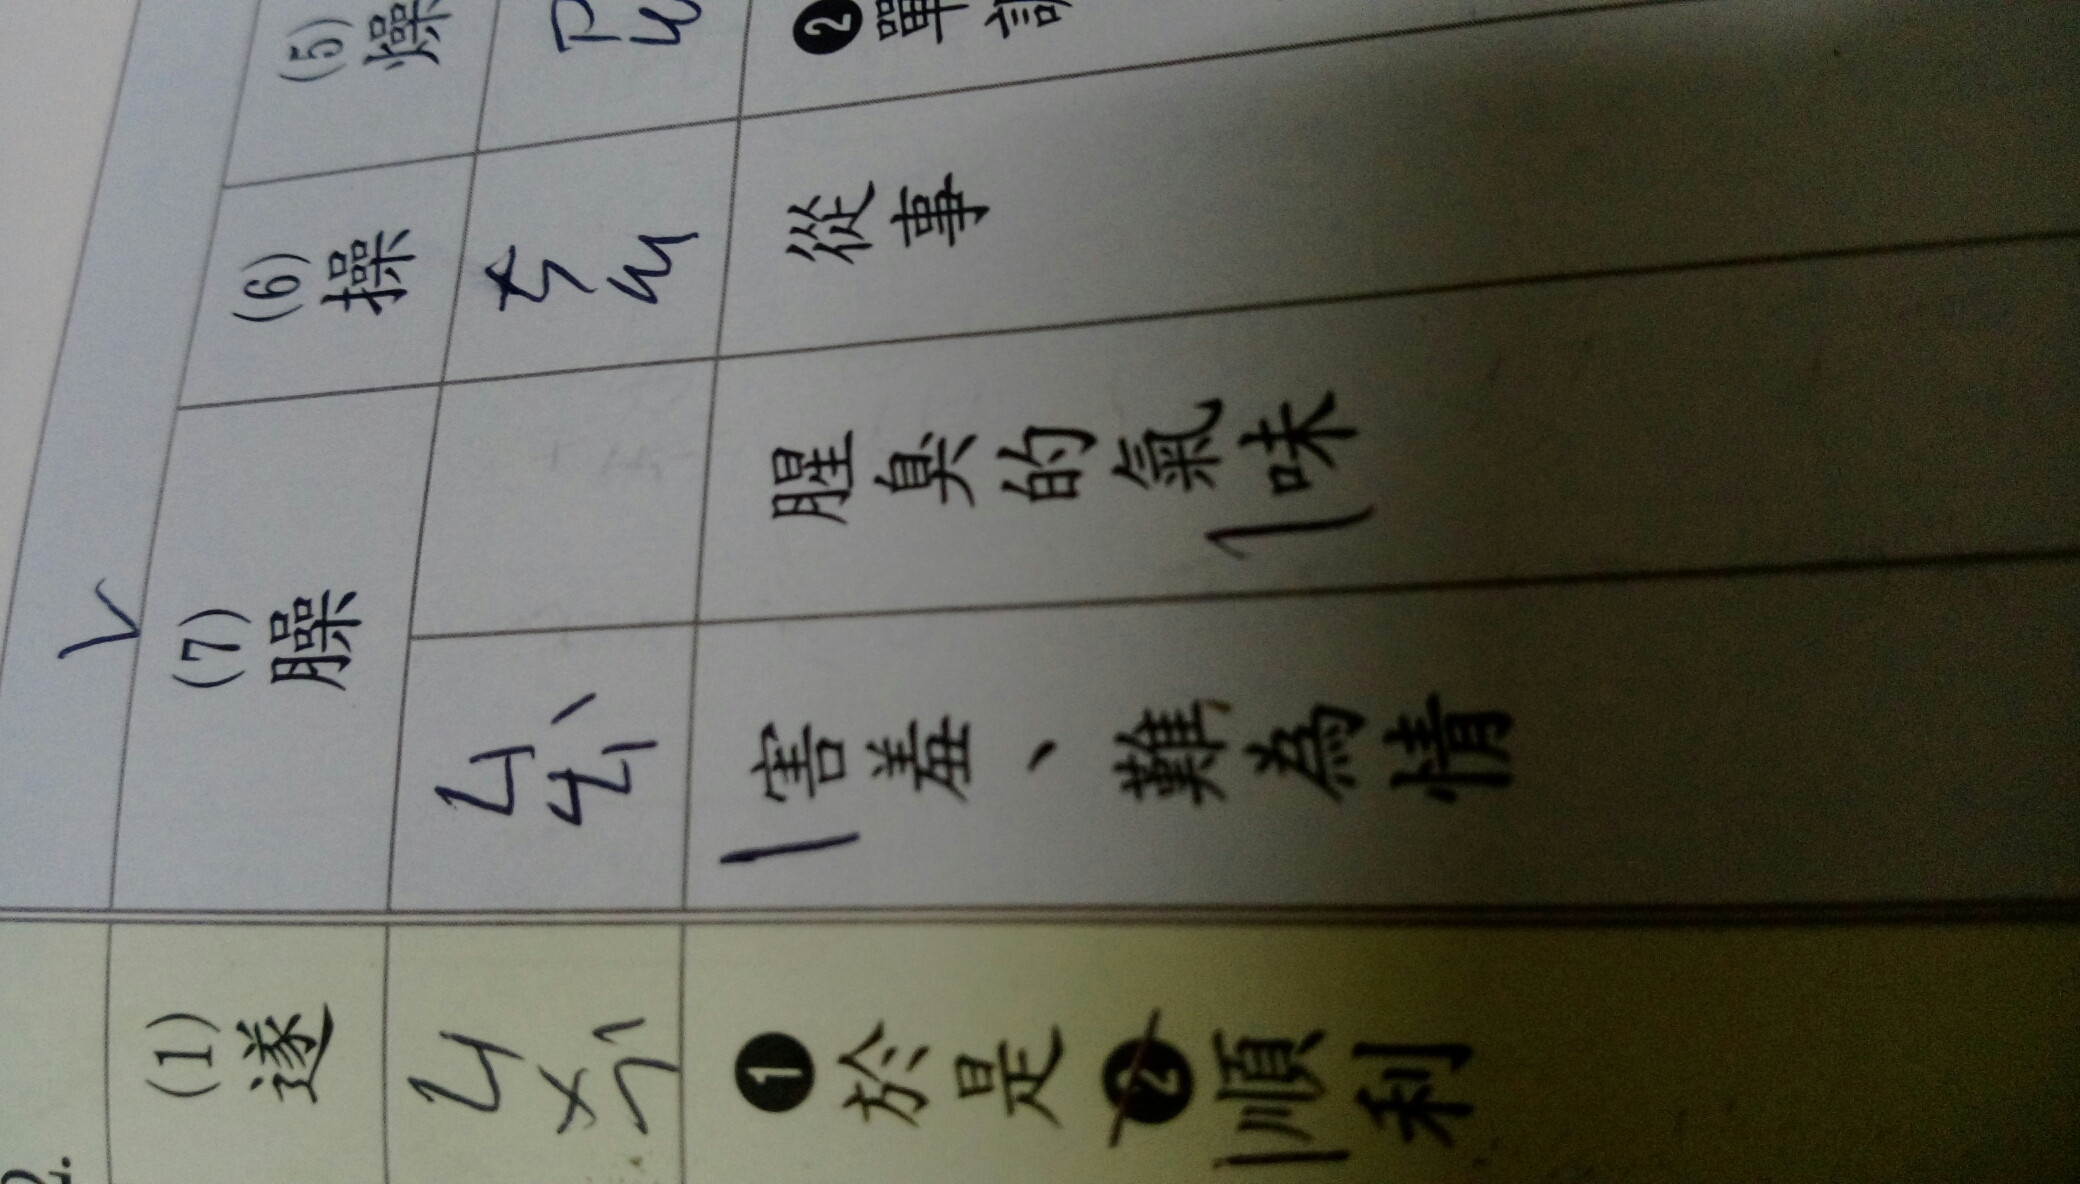 (5)燥
(6)操
ㄘㄠ
從事
(7)臊
腥臭的氣味
ㄙㄠˋ
害羞、難為情
2.
(1)遂
ㄙㄨㄟˋ
❶於是❷順利